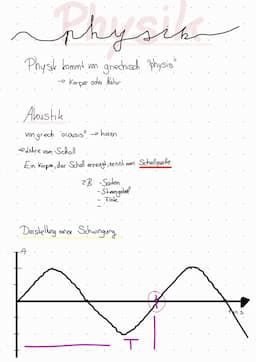 Physik
Physik kommt von griechisch "physis"
→ Körper oder Natur
Akustik
von griech. "acousis" → hören
→ Lehre vom Schall
Ein Körper, der Schall erzeugt, nennt man Schallquelle
z.B. - Saiten
- Stimmgabel
- Flöte
-
Darstellung einer Schwingung
A
T
t in s